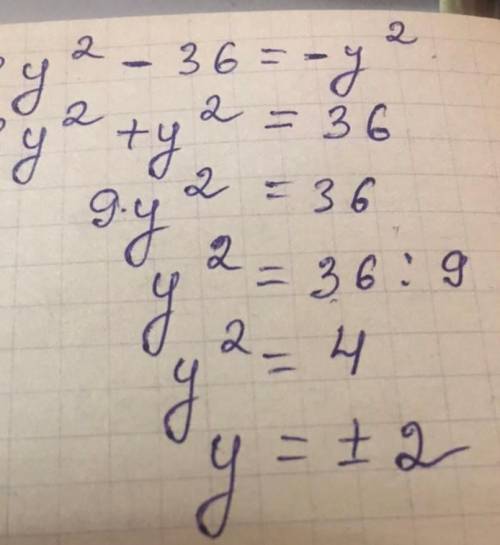 y² - 36 = -y²
y² + y² = 36
9·y² = 36
y² = 36 : 9
y² = 4
y = ± 2